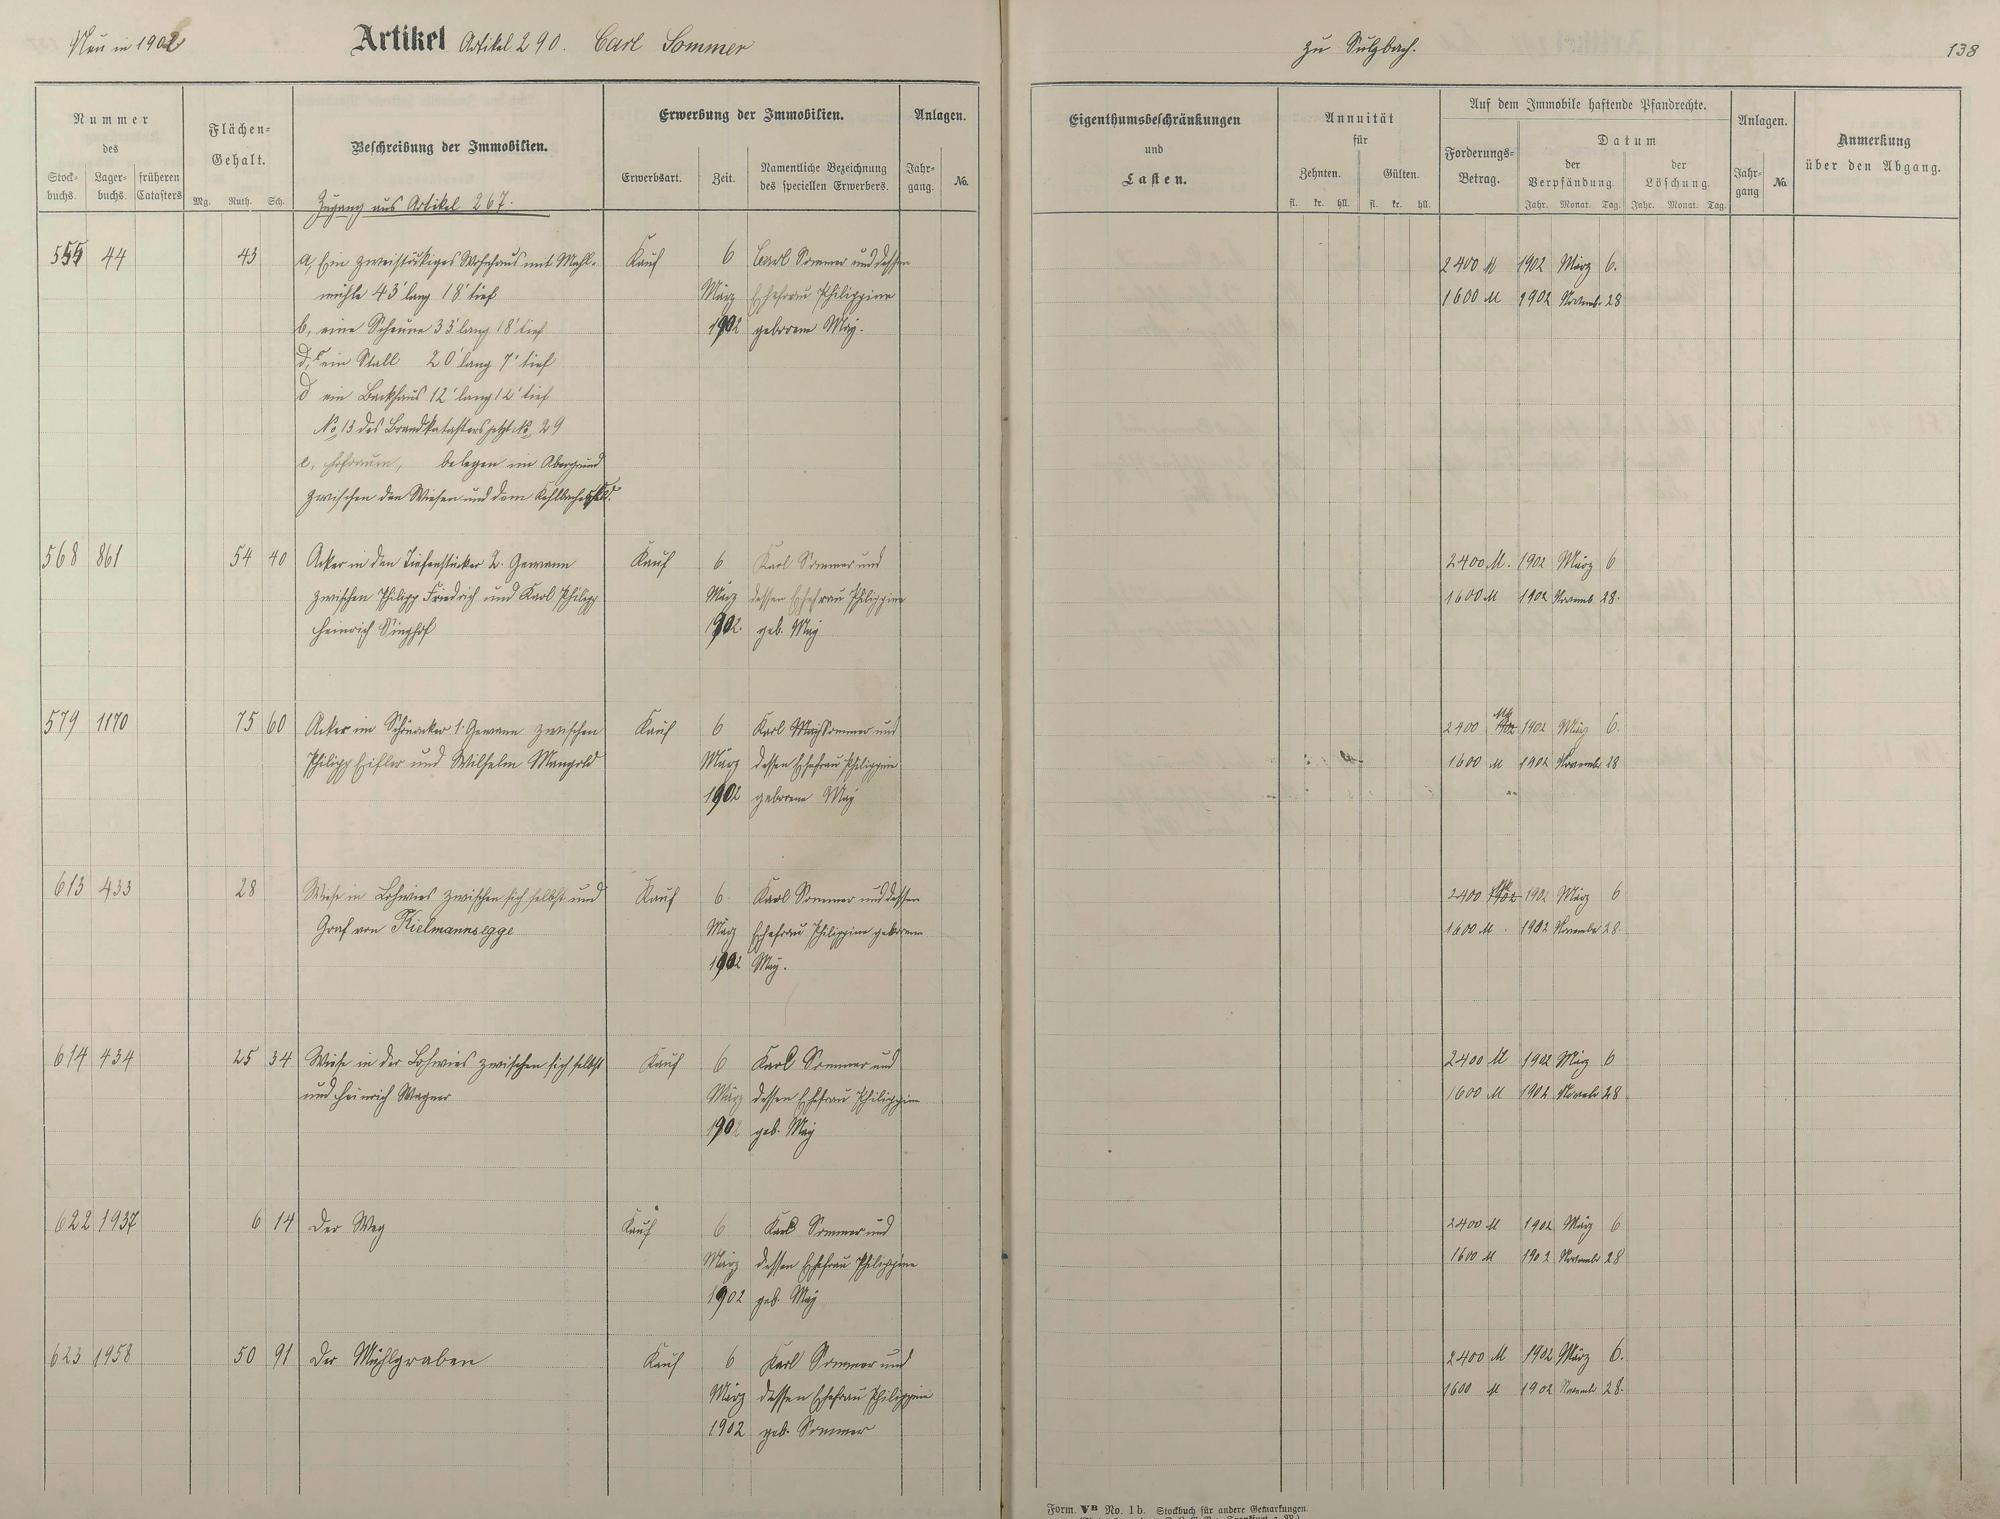 Neu in 1902
Artikel Artikel 290. Carl Sommer
zu Sulzbach.
138
Nummer
des
Stock-
buchs.
Lager-
buchs.
früheren
Catasters
Flächen-
Gehalt.
Mg. Ruth. Sch.
Beschreibung der Immobilien.
Zugang aus Artikel 267.
Erwerbung der Immobilien.
Erwerbsart. Zeit.
Namentliche Bezeichnung
des speciellen Erwerbers.
Anlagen.
Jahr-
gang.
No.
Eigenthumsbeschränkungen
und
Lasten.
Annuität
für
Zehnten. Gülten.
fl. kr. hll. fl. kr. hll.
Auf dem Immobile haftende Pfandrechte.
Forderungs-
Betrag.
Datum
der
Verpfändung.
der
Löschung.
Jahr. Monat. Tag. Jahr. Monat. Tag.
Anlagen.
Jahr-
gang
No.
Anmerkung
über den Abgang.
555 44 43 a, Ein zweistökiges Wohnhaus mit Mahl- Kauf 6 Carl Sommer und dessen 2400 M 1902 März 6.
mühle 43' lang 18' tief März Ehefrau Philippine 1600 M 1902 Novemb. 28
b, eine Scheune 33' lang 18' tief 1902 geborene May.
ein Stall 20' lang 7' tief
d ein Backhaus 12' lang 12' tief
No 13 des Brandkatasters jetzt No 29
e, Hofraum, belegen im Obergrund
zwischen den Wiesen und dem
568 861 54 40 Acker in den Tiefenstücker 2. Gewann Kauf 6 Karl Sommer und 2400 M. 1902 März 6
zwischen Philipp Friedrich und Karl Philipp März dessen Ehefrau Philippine 1600 M 1902 Novemb. 28.
Heinrich Singhof 1902. geb. May
579 1170 75 60 Acker im Schöneacker 1. Gewann zwischen Kauf 6 Karl Sommer und 2400 Mk 1902 März 6.
Philipp Eifler und Wilhelm Mangold März dessen Ehefrau Philippine 1600 M 1902 Novembr. 28
1902 geborene May
613 433 28 Wiese in Lohwies zwischen sich selbst und Kauf 6. Karl Sommer und dessen 2400 Mk 1902 März 6
Graf von Kielmannsegge März Ehefrau Philippine geborene 1600 M. 1902 Novembr 28.
1902 May.
614 434 25 34 Wiese in der Lohwies zwischen sich selbst Kauf 6 Karl Sommer und 2400 M 1902 März 6
und Heinrich Wagner März dessen Ehefrau Philippine 1600 M 1902 Novebr 28
1902 geb. May
622 1937 6 14 Der Weg Kauf 6 Karl Sommer und 2400 M 1902 März 6
März dessen Ehefrau Philippine 1600 M 1902 Novembr 28
1902 geb. May
623 1958 50 91 Der Mühlgraben Kauf 6 Karl Sommer und 2400 M 1902 März 6.
März dessen Ehefrau Philippine 1600 M 1902 Novembr 28.
1902 geb. Sommer
Form. VB No. 1b. Stockbuch für andere Gemarkungen.